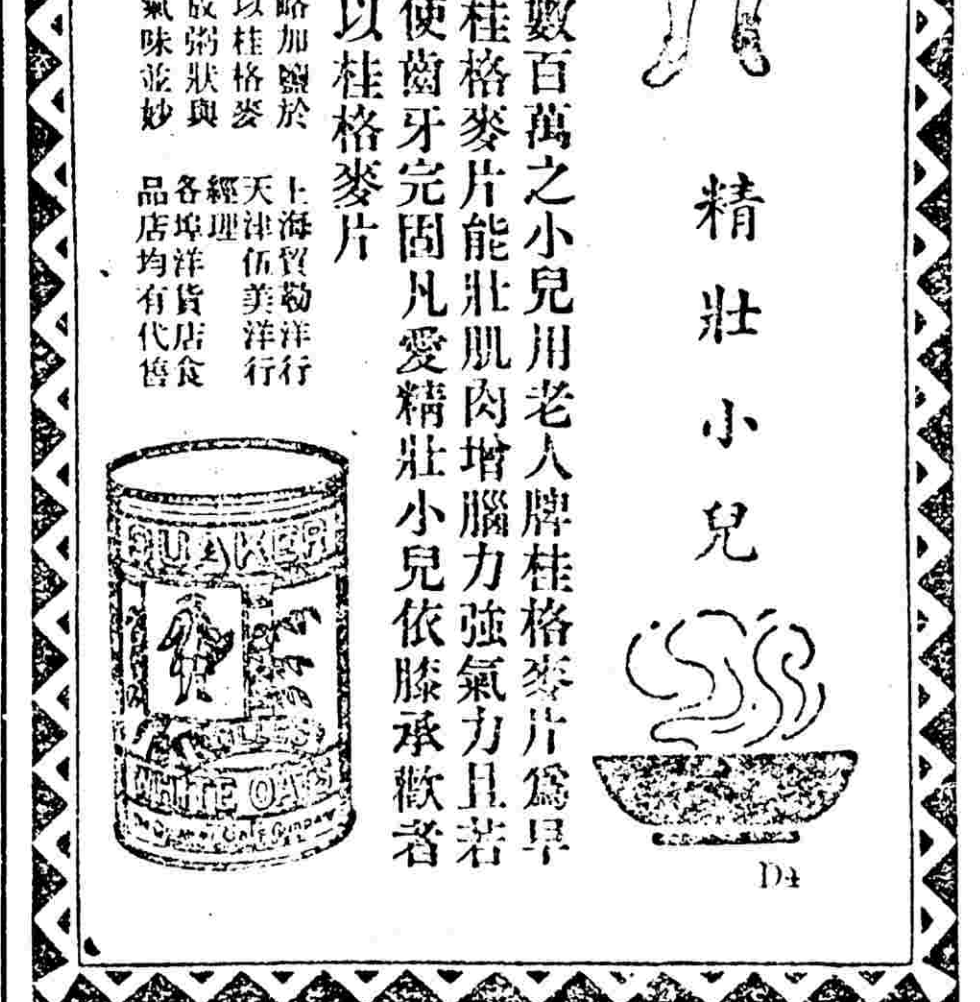 精壯小兒
數百萬之小兒用老人牌桂格麥片爲早
桂格麥片能壯肌肉增腦力強氣力且若
使齒牙完固凡愛精壯小兒依膝承歡者
以桂格麥片
略加鹽於
以桂格麥
成粥狀與
氣味並妙
上海貿勒洋行
天津伍美洋行
經理
各埠洋貨店食
品店均有代售
QUAKER
WHITE OATS
D4